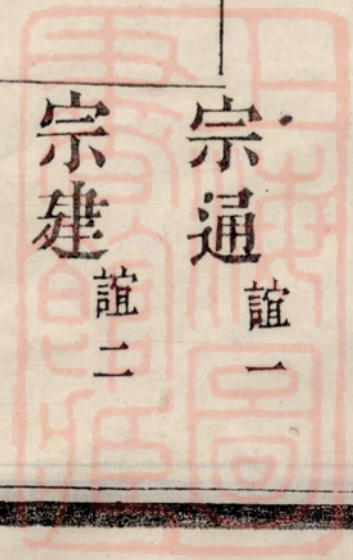 宗通 誼一
宗建 誼二